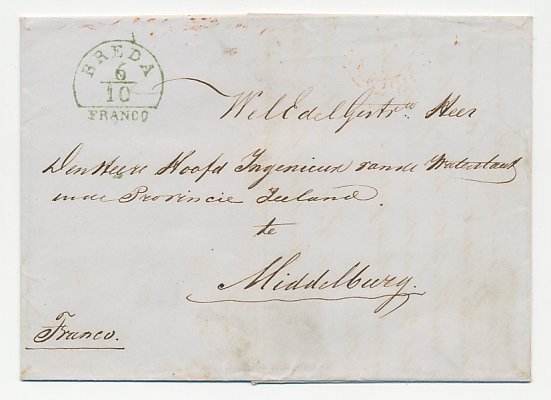 BREDA
6/10
FRANCO
WelEdelGestr. Heer
Den Heere Hoofd Ingenieur van de Waterstaat
in de Provincie Zeeland.
te
Middelburg.
Franco.